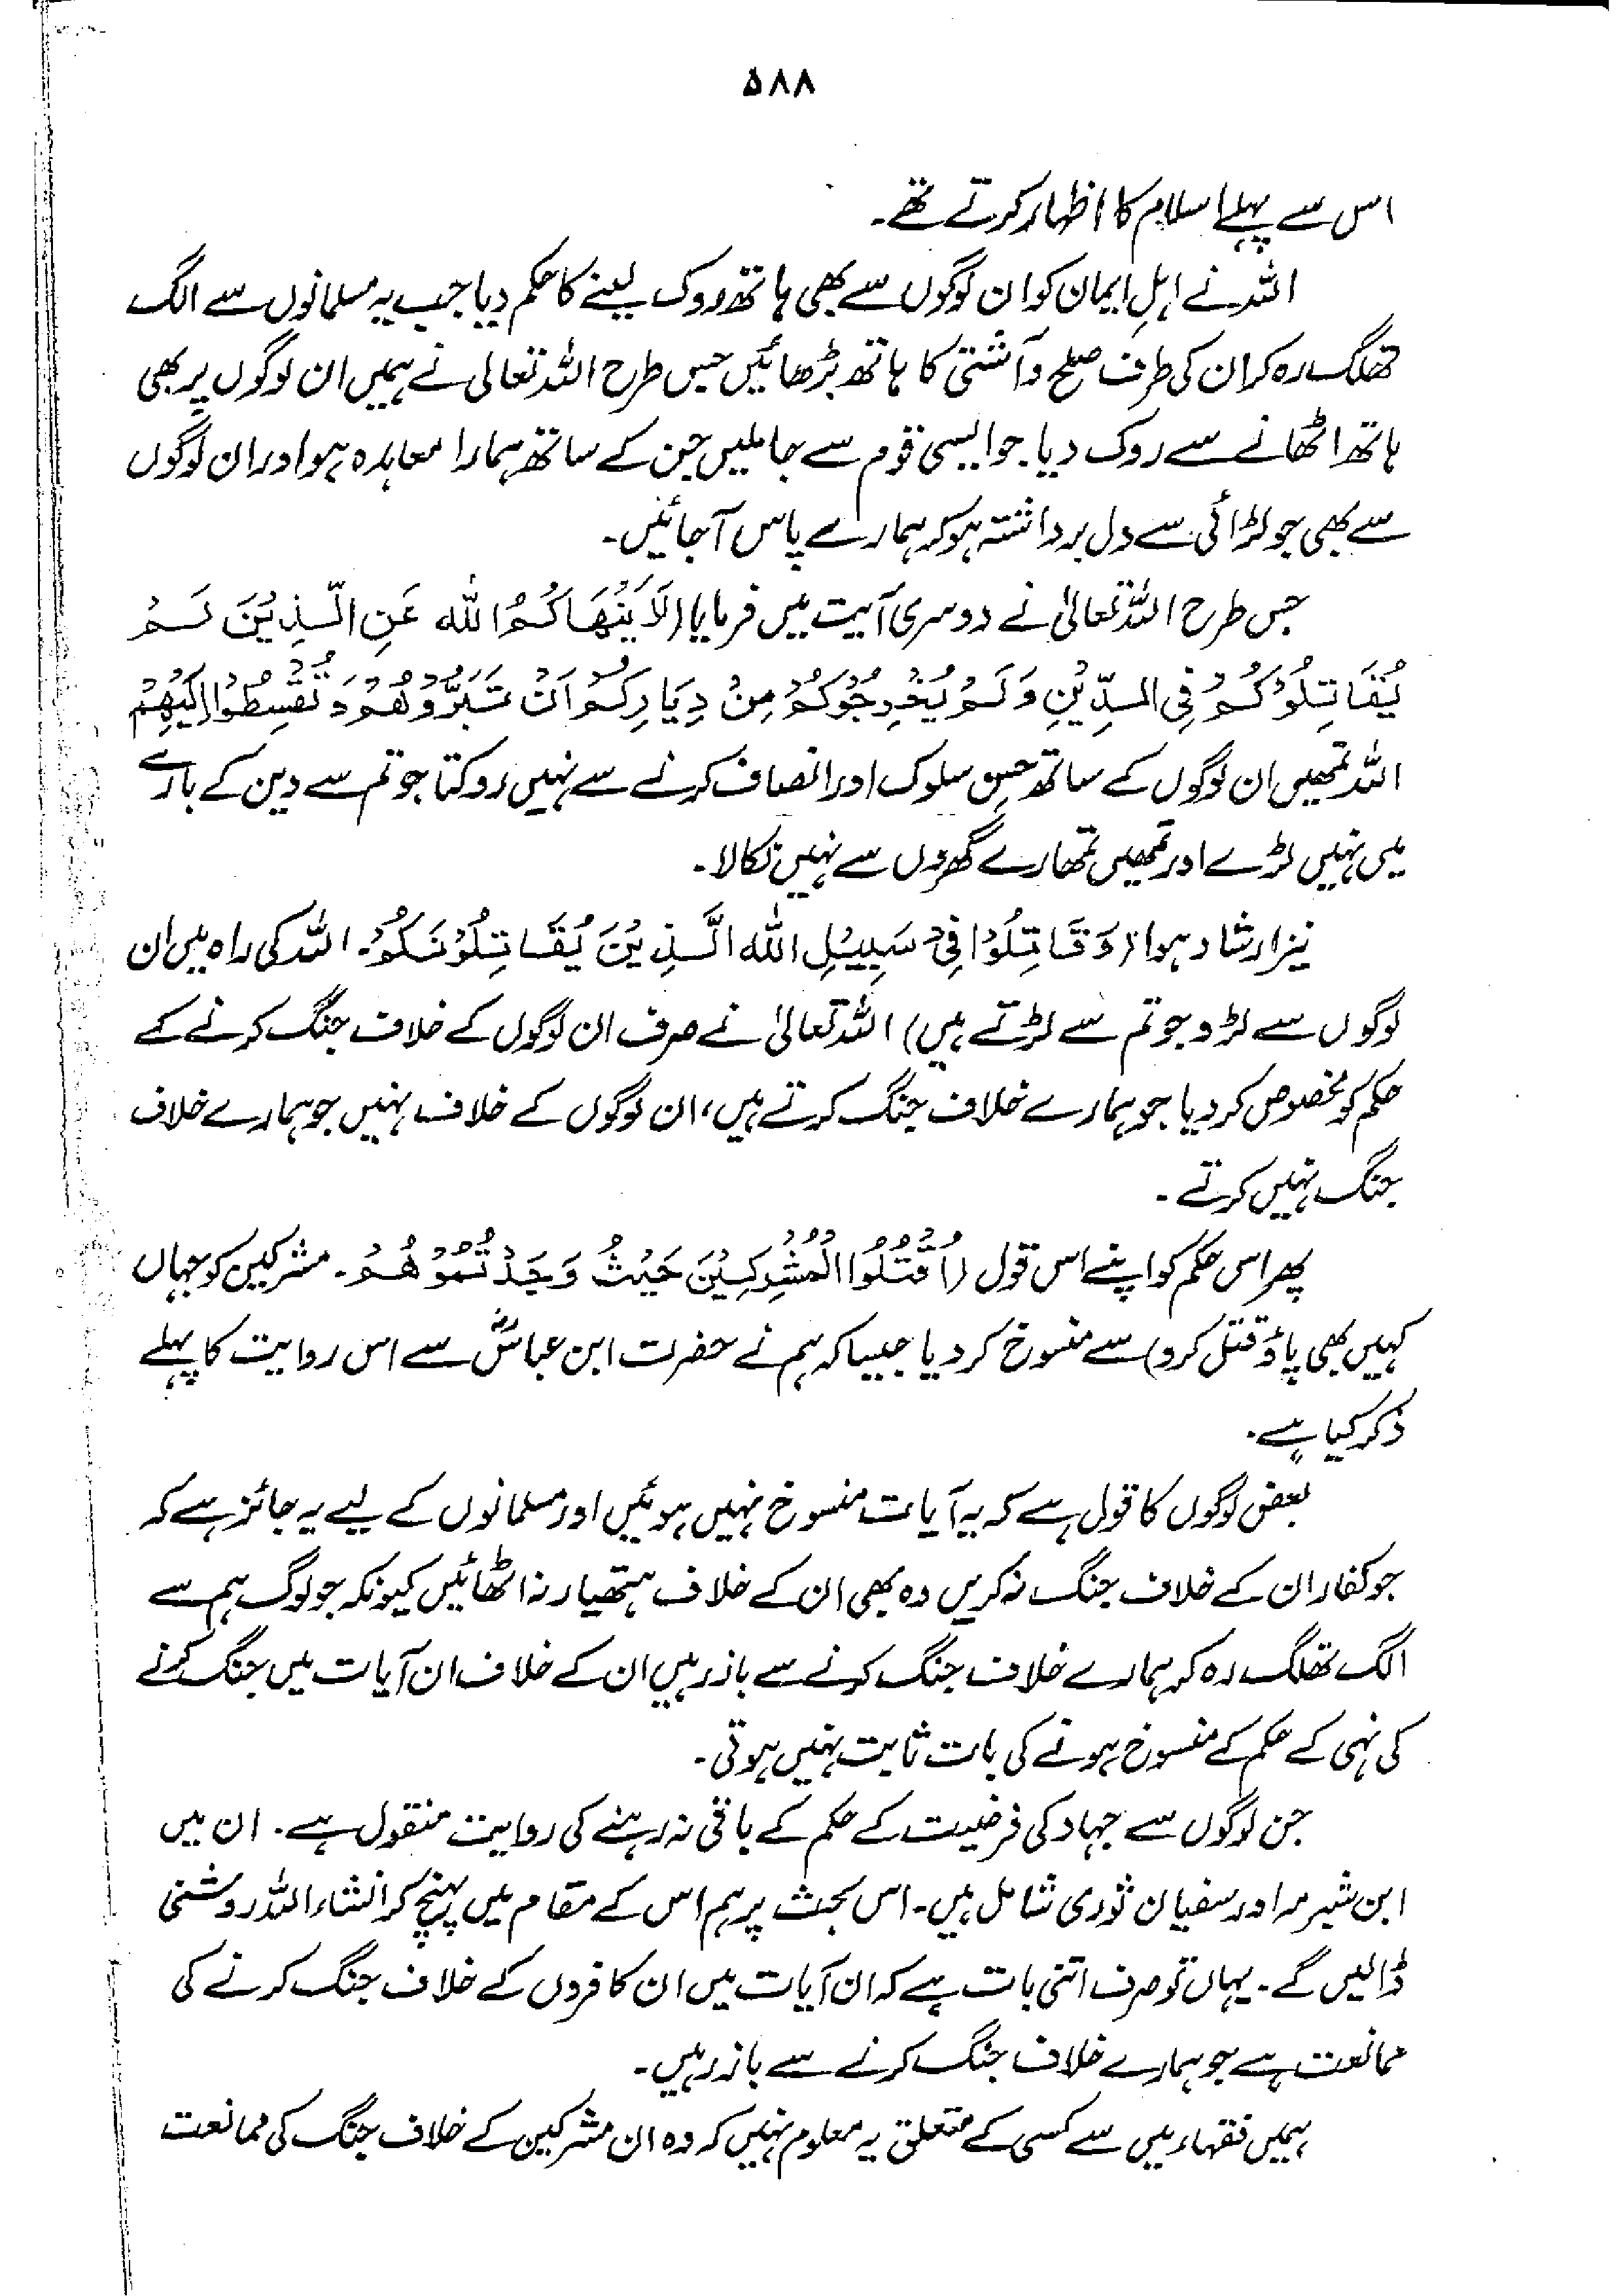 ۵۸۸
اس سے پہلے اسلام کا اظہار کرتے تھے۔
اللہ نے اہلِ ایمان کو ان لوگوں سے بھی ہاتھ روک لینے کا حکم دیا جب یہ مسلمانوں سے الگ
تھلگ رہ کر ان کی طرف صلح و آشتی کا ہاتھ بڑھائیں جس طرح اللہ تعالی نے ہمیں ان لوگوں پر بھی
ہاتھ اٹھانے سے روک دیا جو ایسی قوم سے جا ملیں جن کے ساتھ ہمارا معاہدہ ہو اور ان لوگوں
سے بھی جو لڑائی سے دل برداشتہ ہو کر ہمارے پاس آ جائیں۔
جس طرح اللہ تعالیٰ نے دوسری آیت میں فرمایا (لَا يَنْهَاكُمُ اللّٰه عَنِ الَّذِيْنَ لَمْ
يُقَاتِلُوْكُمْ فِي الدِّيْنِ وَلَمْ يُخْرِجُوْكُمْ مِنْ دِيَارِكُمْ اَنْ تَبَرُّوْهُمْ وَتُقْسِطُوْا اِلَيْهِمْ
اللہ تمھیں ان لوگوں کے ساتھ حسن سلوک اور انصاف کرنے سے نہیں روکتا جو تم سے دین کے بارے
میں نہیں لڑے اور تمھیں تمھارے گھروں سے نہیں نکالا۔
نیز ارشاد ہوا (وَقَاتِلُوْا فِيْ سَبِيْلِ اللّٰه الَّذِيْنَ يُقَاتِلُوْنَكُمْ۔ اللہ کی راہ میں ان
لوگوں سے لڑو جو تم سے لڑتے ہیں) اللہ تعالیٰ نے صرف ان لوگوں کے خلاف جنگ کرنے کے
حکم کو مخصوص کر دیا جو ہمارے خلاف جنگ کرتے ہیں، ان لوگوں کے خلاف نہیں جو ہمارے خلاف
جنگ نہیں کرتے۔
پھر اس حکم کو اپنے اس قول (اُقْتُلُوا الْمُشْرِكِيْنَ حَيْثُ وَجَدْتُمُوْهُمْ۔ مشرکین کو جہاں
کہیں بھی پاؤ قتل کرو) سے منسوخ کر دیا جیسا کہ ہم نے حضرت ابن عباسؓ سے اس روایت کا پہلے
ذکر کیا ہے۔
بعض لوگوں کا قول ہے کہ یہ آیات منسوخ نہیں ہوئیں اور مسلمانوں کے لیے یہ جائز ہے کہ
جو کفار ان کے خلاف جنگ نہ کریں وہ بھی ان کے خلاف ہتھیار نہ اٹھائیں کیونکہ جو لوگ ہم سے
الگ تھلگ رہ کر ہمارے خلاف جنگ کرنے سے باز رہیں ان کے خلاف ان آیات میں جنگ کرنے
کی نہی کے حکم کے منسوخ ہونے کی بات ثابت نہیں ہوتی۔
جن لوگوں سے جہاد کی فرضیت کے حکم کے باقی نہ رہنے کی روایت منقول ہے۔ ان میں
ابن شبرمہ اور سفیان ثوری شامل ہیں۔ اس بحث پر ہم اس کے مقام میں پہنچ کر انشاء اللہ روشنی
ڈالیں گے۔ یہاں تو صرف اتنی بات ہے کہ ان آیات میں ان کافروں کے خلاف جنگ کرنے کی
ممانعت ہے جو ہمارے خلاف جنگ کرنے سے باز رہیں۔
ہمیں فقہاء میں سے کسی کے متعلق یہ معلوم نہیں کہ وہ ان مشرکین کے خلاف جنگ کی ممانعت